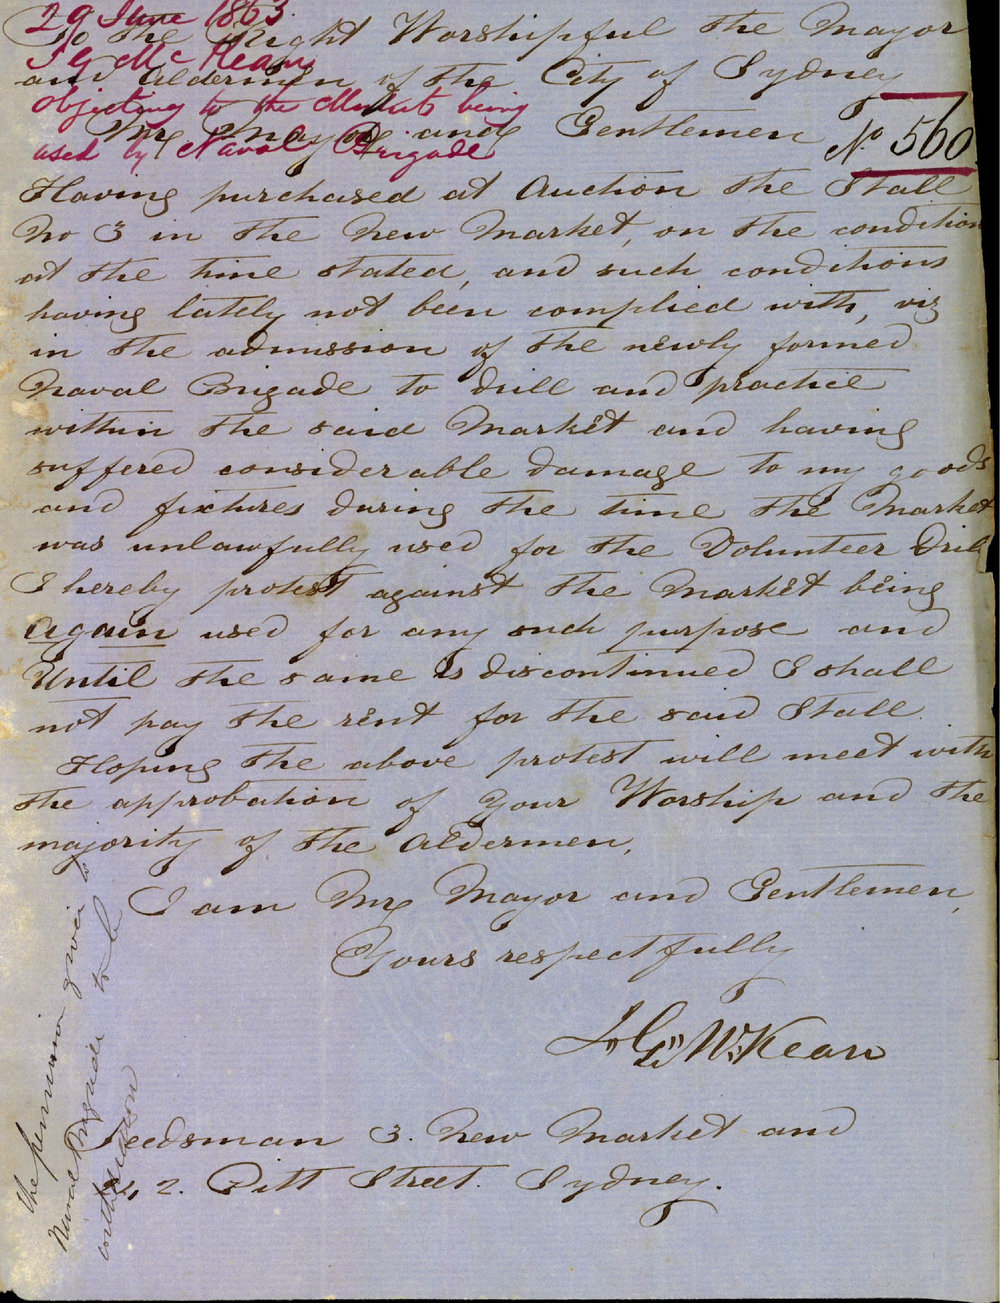 29 June 1863
J G McKean
objecting to the Markets being
used by Naval Brigade
No 560
To the Right Worshipful the Mayor
and Aldermen of the City of Sydney
Mr Mayor and Gentlemen
Having purchased at Auction the Stall
No 3 in the New Market, on the condition
at the time stated, and such conditions
having lately not been complied with, viz
in the admission of the newly formed
Naval Brigade to drill and practice
within the said Market and having
suffered considerable damage to my goods
and fixtures during the time the Market
was unlawfully used for the Volunteer Drill
I hereby protest against the Market being
Again used for any such purpose and
Until the same is discontinued I shall
not pay the rent for the said Stall.
Hoping the above protest will meet with
the approbation of your Worship and the
majority of the Aldermen,
I am Mr Mayor and Gentlemen,
Yours respectfully
J G McKean
Seedsman 3. New Market and
" 2. Pitt Street. Sydney.
The permission given to
Naval Brigade to be
withdrawn